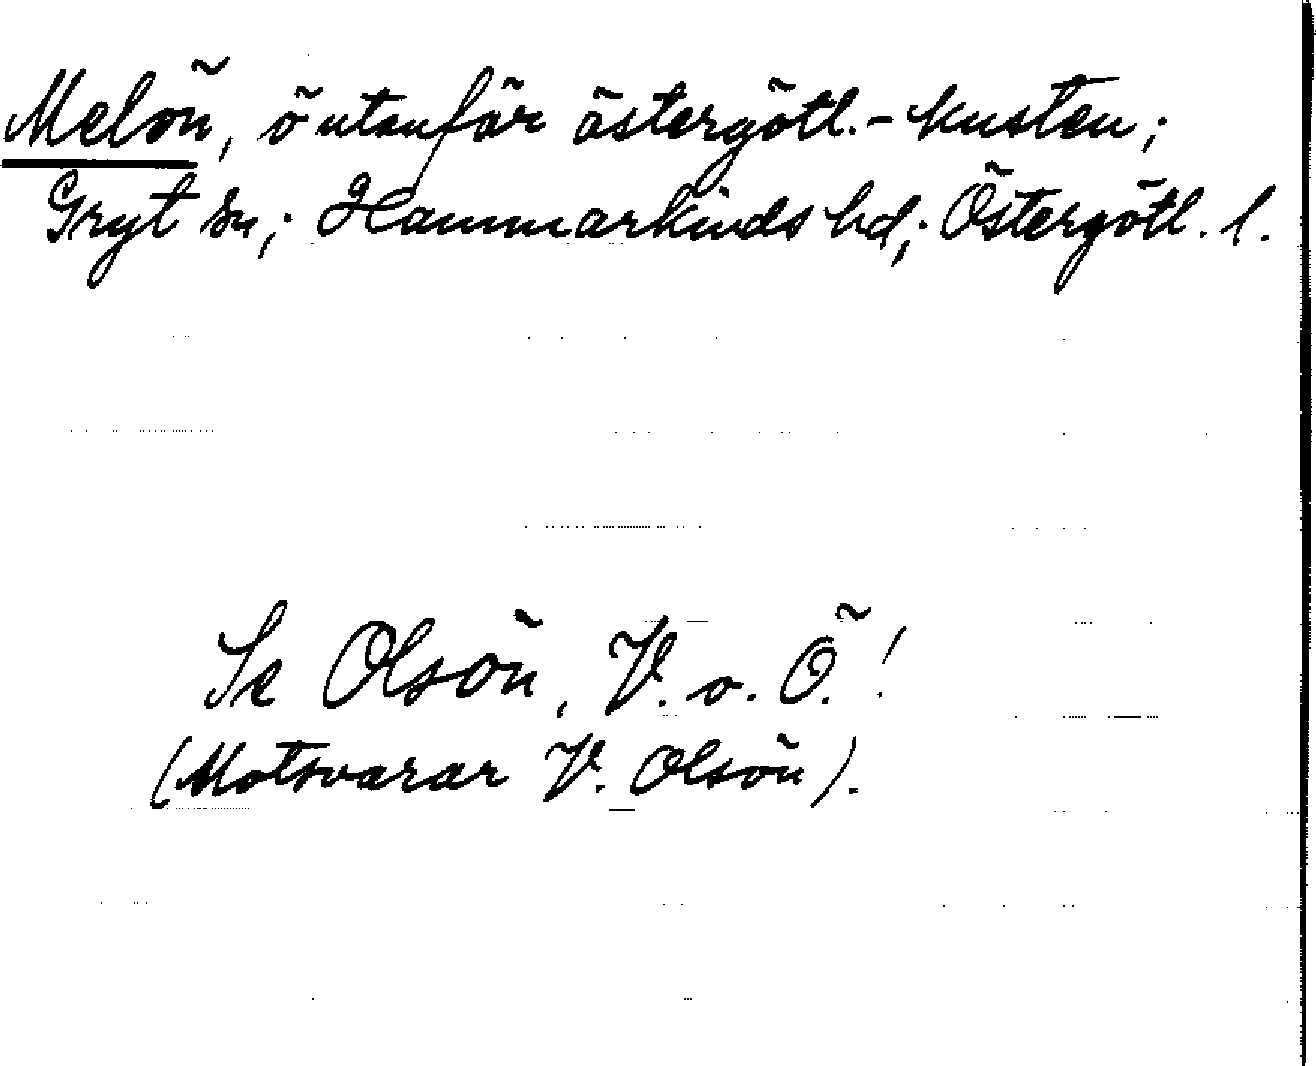 Melön, ö utanför östergötl.-kusten;
Gryt sn; Hammarkinds hd; Östergötl. l.
Se Olsön, V. o. Ö.!
(Motsvarar V. Olsön).